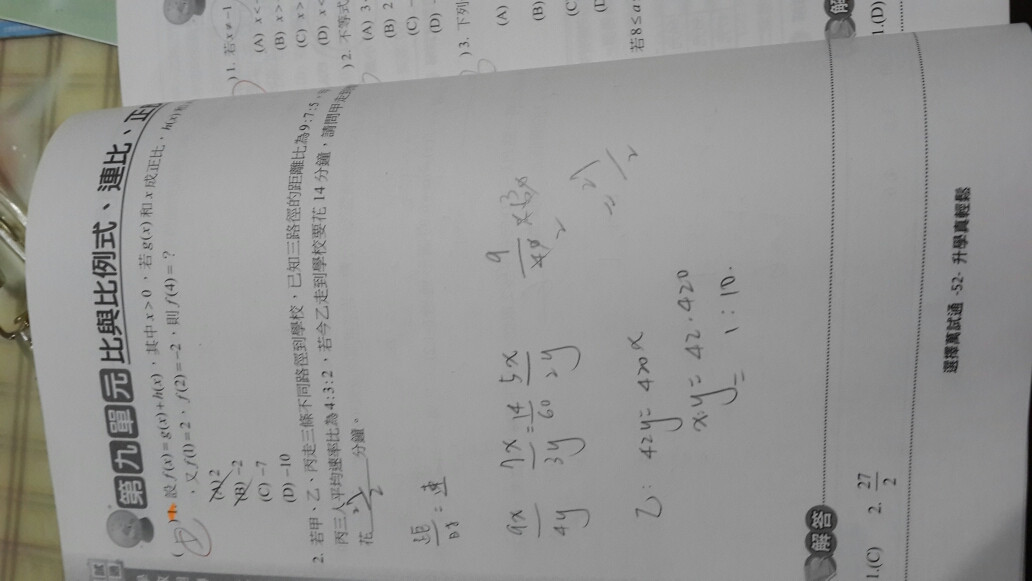 第九單元 比與比例式、連比、正
1. 設f(x)=g(x)+h(x),其中x>0,若g(x)和x成正比,h(x)
,又f(1)=2,f(2)=-2,則f(4)=?
(A) 2
(B) -2
(C) -7
(D) -10
2. 若甲、乙、丙走三條不同路徑到學校,已知三路徑的距離比為9:7:5,
丙三人平均速率比為4:3:2,若今乙走到學校要花14分鐘,請問甲走到
花 27/2 分鐘。
9x/4y 7x/3y = 14/60 5x/2y
乙: 42y = 420x
x:y = 42:420
= 1:10.
= 27/2
解答
1.(C) 2. 27/2
選擇萬試通 -52- 升學真輕鬆
) 1. 若x≠-1
(A) x<
(B) x>
(C) x>
(D) x<
) 2. 不等式
(A) 3
(B) 2
(C)
(D)
) 3. 下列
(A)
(B)
若8≤a
解
1.(D)